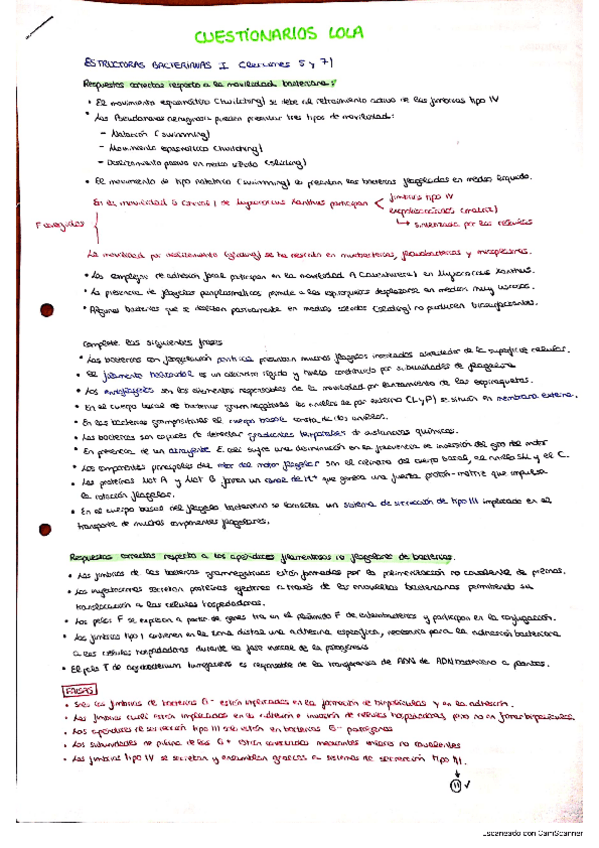 CUESTIONARIOS LOLA
ESTRUCTURAS BACTERIANAS I (lecciones 5 y 7)
Respuestas correctas respecto a la movilidad bacteriana:
• El movimiento espasmódico (twitching) se debe al retraimiento activo de las fimbrias tipo IV
• Las Pseudomonas aeruginosa pueden presentar tres tipos de movilidad:
– Natación (swimming)
– Movimiento espasmódico (twitching)
– Deslizamiento pasivo en medio sólido (sliding)
• El movimiento de tipo natatorio (swimming) lo presentan las bacterias flageladas en medio líquido.
En la movilidad de Myxococcus Xanthus participan
fimbrias tipo IV
exopolisacáridos (matriz)
→ sintetizada por las células
La movilidad por deslizamiento (gliding) se ha descrito en mixobacterias, flavobacterias y micoplasmas.
• Los complejos de adhesión focal participan en la movilidad A (aventurera) en Myxococcus Xanthus.
• La presencia de flagelos periplasmáticos permite a las espiroquetas desplazarse en medios muy viscosos.
• Algunas bacterias que se deslizan pasivamente en medios sólidos (sliding) no producen biosurfactantes.
Complete las siguientes frases
• Las bacterias con flagelación peritrica presentan muchos flagelos insertados alrededor de la superficie celular.
• El filamento helicoidal es un cilindro rígido y hueco constituido por subunidades de flagelina
• Los endoflagelos son los elementos responsables de la movilidad por flexionamiento de las espiroquetas.
• En el cuerpo basal de bacterias gramnegativas los anillos de par externo (L y P) se sitúan en membrana externa.
• En las bacterias grampositivas el cuerpo basal consta de dos anillos.
• Las bacterias son capaces de detectar gradientes temporales de sustancias químicas.
• En presencia de un atrayente E. coli sufre una disminución en la frecuencia de inversión del giro del motor
• Los componentes principales del rotor del motor flagelar son el cilindro del cuerpo basal, el anillo SM y el C.
• Las proteínas Mot A y Mot B forman un canal de H⁺ que genera una fuerza protón-motriz que impulsa
la rotación flagelar.
• En el cuerpo basal del flagelo bacteriano se localiza un sistema de secreción de tipo III implicado en el
transporte de muchos componentes flagelares.
Respuestas correctas respecto a los apéndices filamentosos no flagelares de bacterias.
• Las fimbrias de las bacterias gramnegativas están formadas por la polimerización no covalente de pilinas.
• Los inyectisomas secretan proteínas efectoras a través de las envueltas bacterianas permitiendo su
translocación a las células hospedadoras.
• Los pelos F se expresan a partir de genes tra en el plásmido F de enterobacterias y participan en la conjugación.
• Las fimbrias tipo I contienen en la zona distal una adhesina específica, necesaria para la adhesión bacteriana
a las células hospedadoras durante la fase inicial de la patogénesis
• El pelo T de Agrobacterium tumefaciens es responsable de la transferencia de ADN de ADN bacteriano a plantas.
FALSAS
• Sólo las fimbrias de bacterias G⁻ están implicadas en la formación de biopelículas y en la adhesión.
• Las fimbrias curli están implicadas en la adhesión e invasión de células hospedadoras, pero no en formar biopelículas.
• Los apéndices de secreción tipo III sólo están en bacterias G⁻ patógenas
• Las subunidades de pilina de las G⁺ están conectadas mediante enlaces no covalentes
• Las fimbrias tipo IV se secretan y ensamblan gracias a sistemas de secreción tipo III.
II ✓
Escaneado con CamScanner